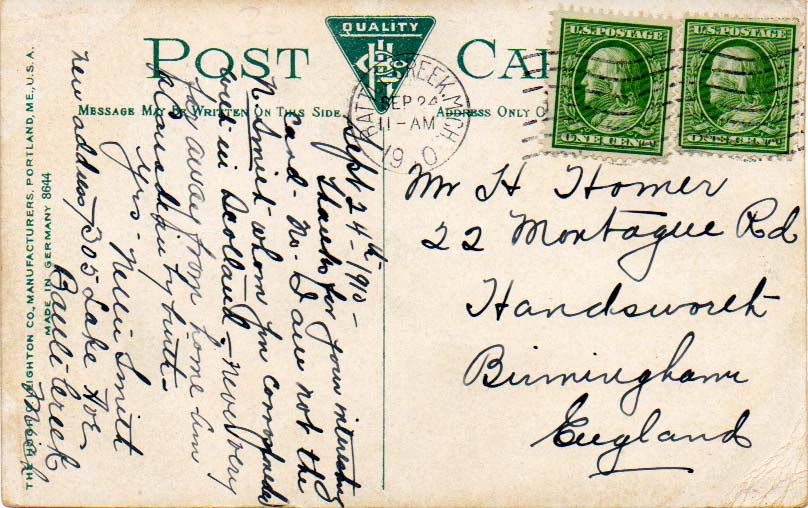 POST CARD
QUALITY
MESSAGE MAY BE WRITTEN ON THIS SIDE
ADDRESS ONLY O
BATTLE CREEK, MICH.
SEP 24
11-AM
1910
U.S. POSTAGE
ONE CENT
U.S. POSTAGE
ONE CENT
Mr H Homer
22 Montague Rd
Handsworth
Birmingham
England
Sept 24th-1910-
Thanks for your interesting
card- No- I am not the
N. Smith whom you corresponded
with in Scotland, - never very
far away from home am
by birth-
yrs- Nellie Smith
new address, 305 Lake Ave
Battle Creek
Mich
THE HUGH C. LEIGHTON CO., MANUFACTURERS, PORTLAND, ME., U.S.A.
MADE IN GERMANY 8644